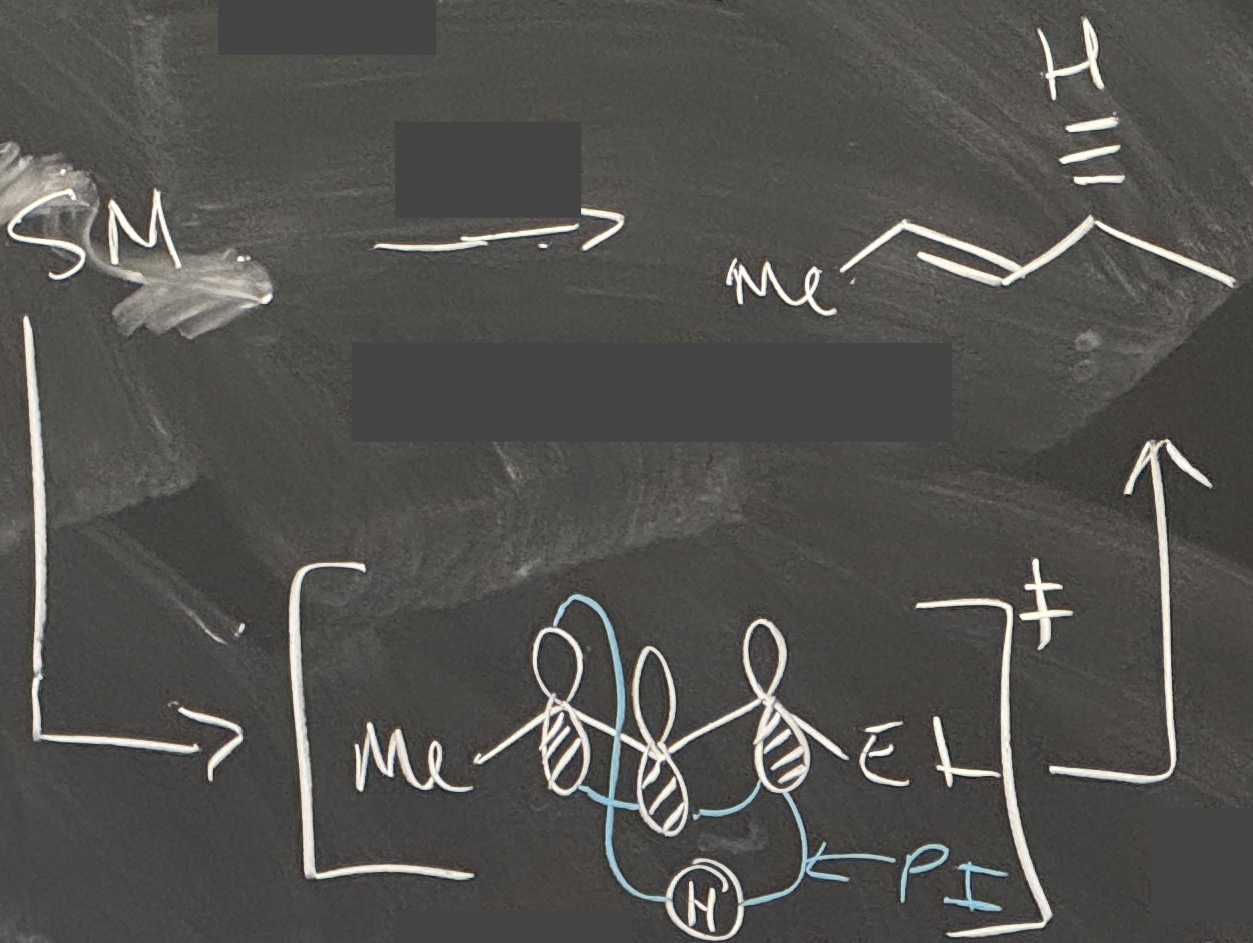 H
SM
Me
‡
Me Et
H
PI